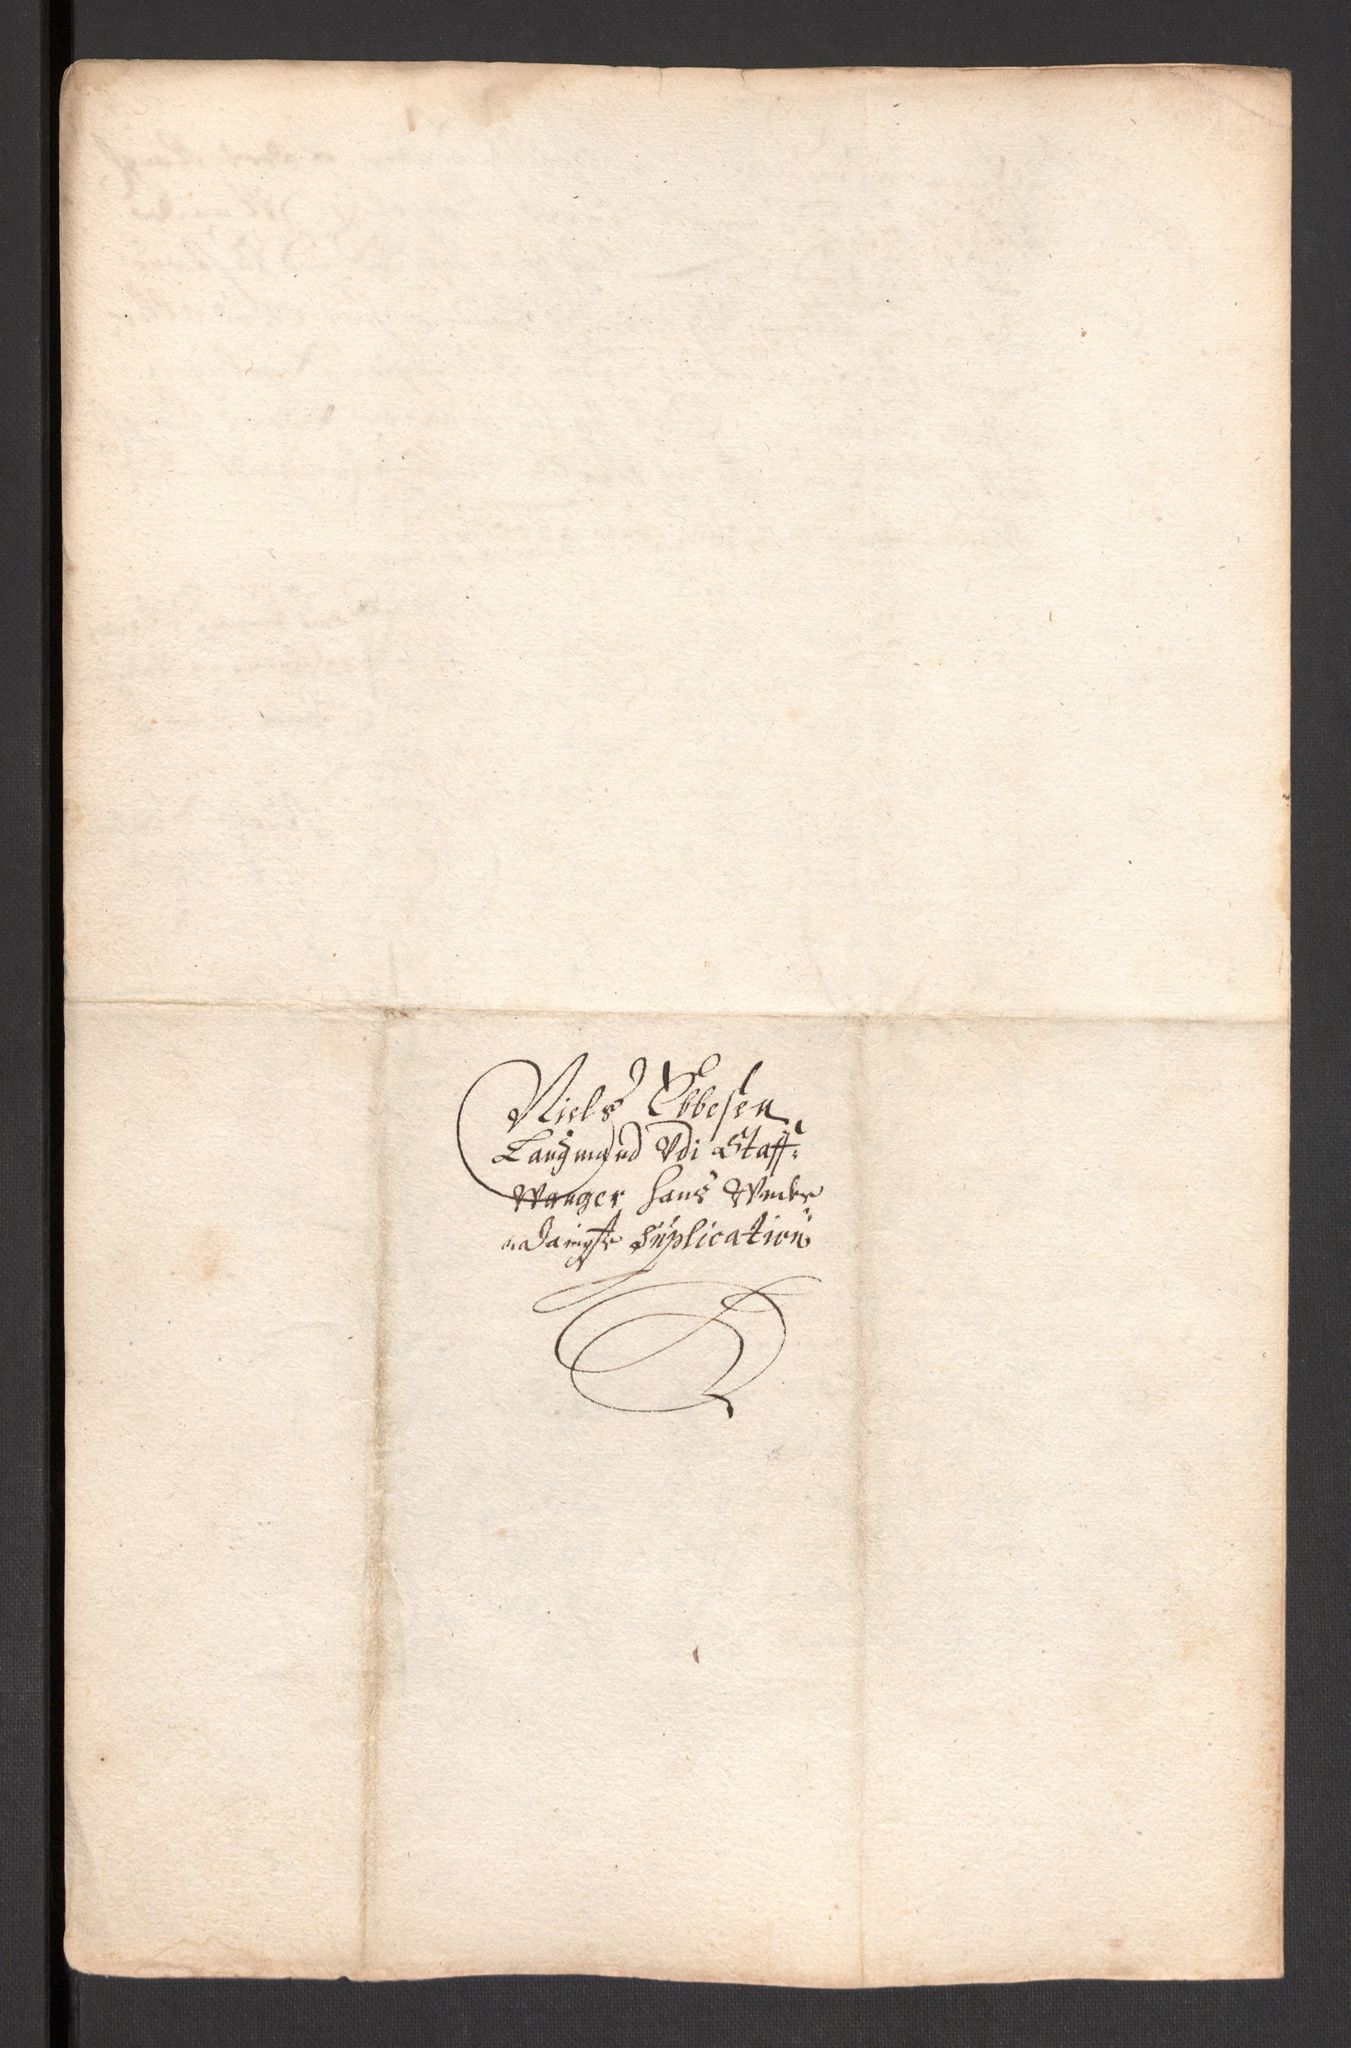 Niels Ebbesen
Laugmand Udi Staff-
Wanger hans Under
danigste Suplication